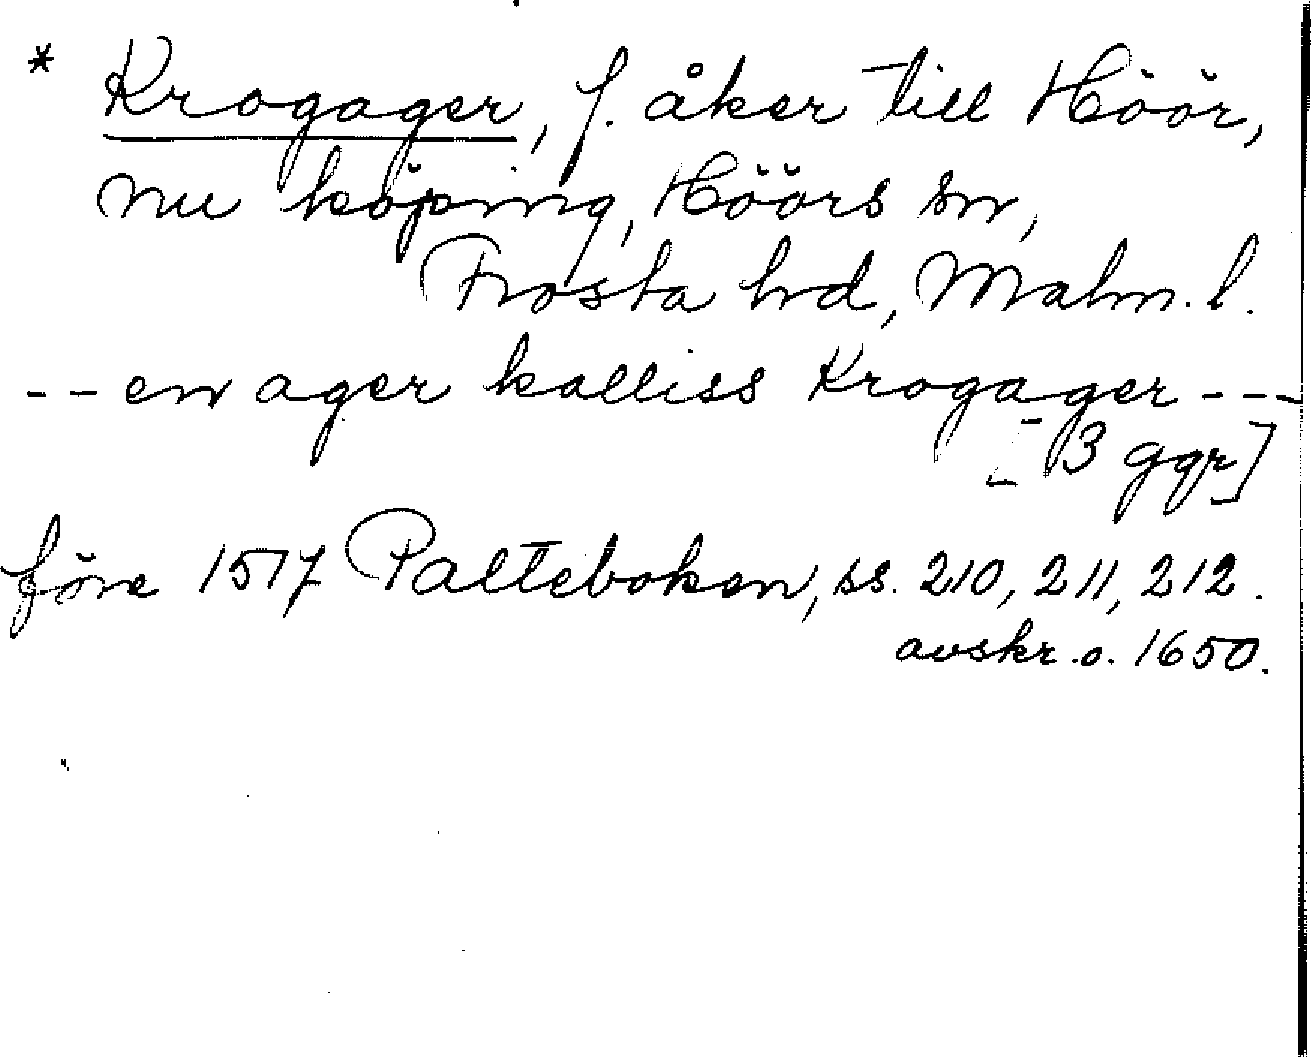 * Krogager, f. åker till Höör,
nu köping, Höörs sn,
Frosta hd, Malm. l.
-- en ager kalliss Krogager ---
[3 ggr]
före 1517 Palteboken, ss. 210, 211, 212.
avskr. o. 1650.